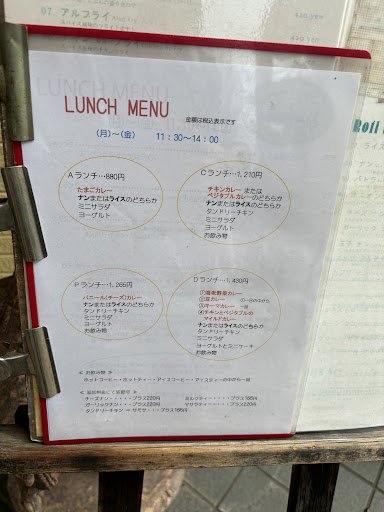 LUNCH MENU
金額は税込表示です
(月)～(金)　11：30～14：00
Aランチ…880円
たまごカレー
ナンまたはライスのどちらか
ミニサラダ
ヨーグルト
Cランチ…1,210円
チキンカレー または
ベジタブルカレーのどちらか
ナンまたはライスのどちらか
タンドリーチキン
ミニサラダ
ヨーグルト
お飲み物
Pランチ…1,265円
パニール(チーズ)カレー
ナンまたはライスのどちらか
タンドリーチキン
ミニサラダ
ヨーグルト
お飲み物
Dランチ…1,430円
①海老野菜カレー
②豆カレー
③キーマカレー
④チキンとベジタブルの
マイルドカレー
ナンまたはライスのどちらか
タンドリーチキン
ミニサラダ
ヨーグルトとミニケーキ
お飲み物
≪ お飲み物 ≫
ホットコーヒー・ホットティー・アイスコーヒー・アイスティーの中から一品
チーズナン・・・・・プラス220円
ガーリックナン・・・プラス220円
マサラティー・・・・プラス220円
Roti